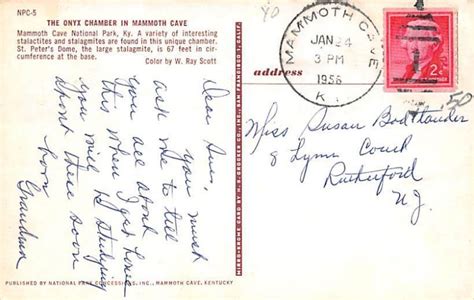 NPC-5
THE ONYX CHAMBER IN MAMMOTH CAVE
Mammoth Cave National Park, Ky. A variety of interesting
stalactites and stalagmites are found in this unique chamber.
St. Peter's Dome, the large stalagmite, is 67 feet in cir-
cumference at the base.
Color by W. Ray Scott
Dear Sue,
you must
ask me to tell
you all about
this when I get home
you will be studying
about these soon
Love
Grandma
PUBLISHED BY NATIONAL PARK CONCESSIONS, INC., MAMMOTH CAVE, KENTUCKY
MAMMOTH CAVE
JAN 24
3 PM
1956
KY.
2¢
address
Miss Susan
8 Lynn Court
Rutherford
N.J.